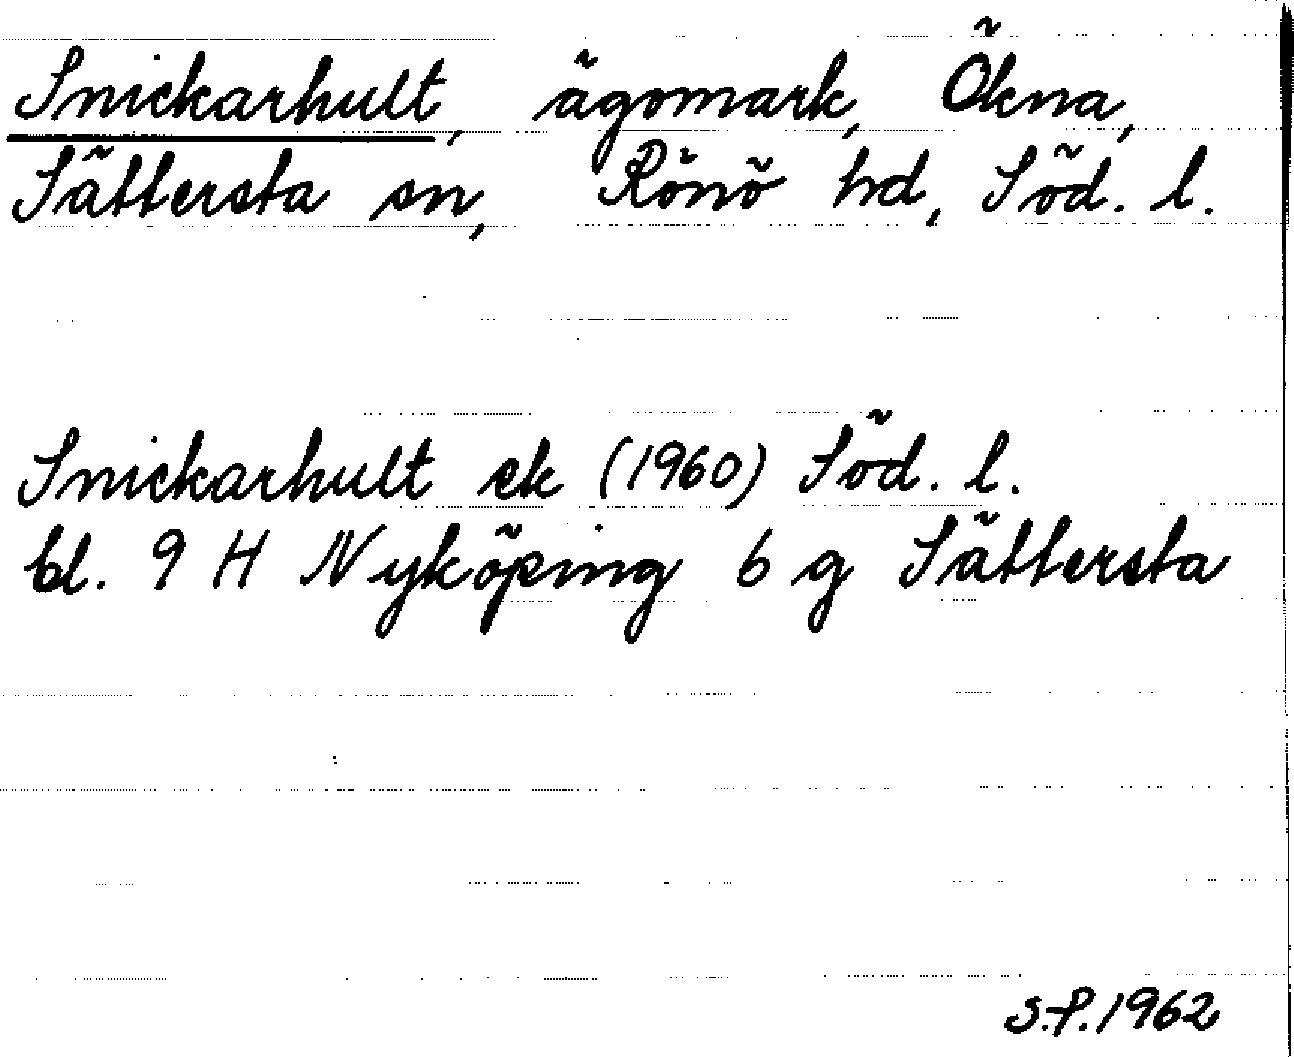 Snickarhult, ägomark, Ökna,
Sättersta sn, Rönö hd, Söd. l.
Snickarhult ek (1960) Söd. l.
bl. 9 H Nyköping 6 g Sättersta
S.P. 1962